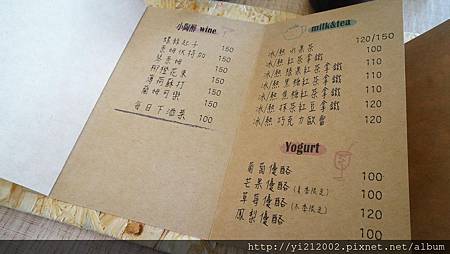 小陶醉 wine
螺絲起子 150
柰姆伏特加 150
琴柰姆 150
柳橙花束 150
薄荷蘇打 150
蘭姆可樂 150
每日下酒菜 100
milk&tea
冰/熱 水果茶 120/150
冰/熱 紅茶拿鐵 100
冰/熱 榛果紅茶拿鐵 110
冰/熱 焦糖紅茶拿鐵 110
冰/熱 黑糖紅茶拿鐵 110
冰/熱 抹茶紅豆拿鐵 120
冰/熱 巧克力歐蕾 120
Yogurt
葡萄優酪 100
芒果優酪 (夏季限定) 100
草莓優酪 (冬季限定) 120
鳳梨優酪 100
http://yi212002.pixnet.net/album